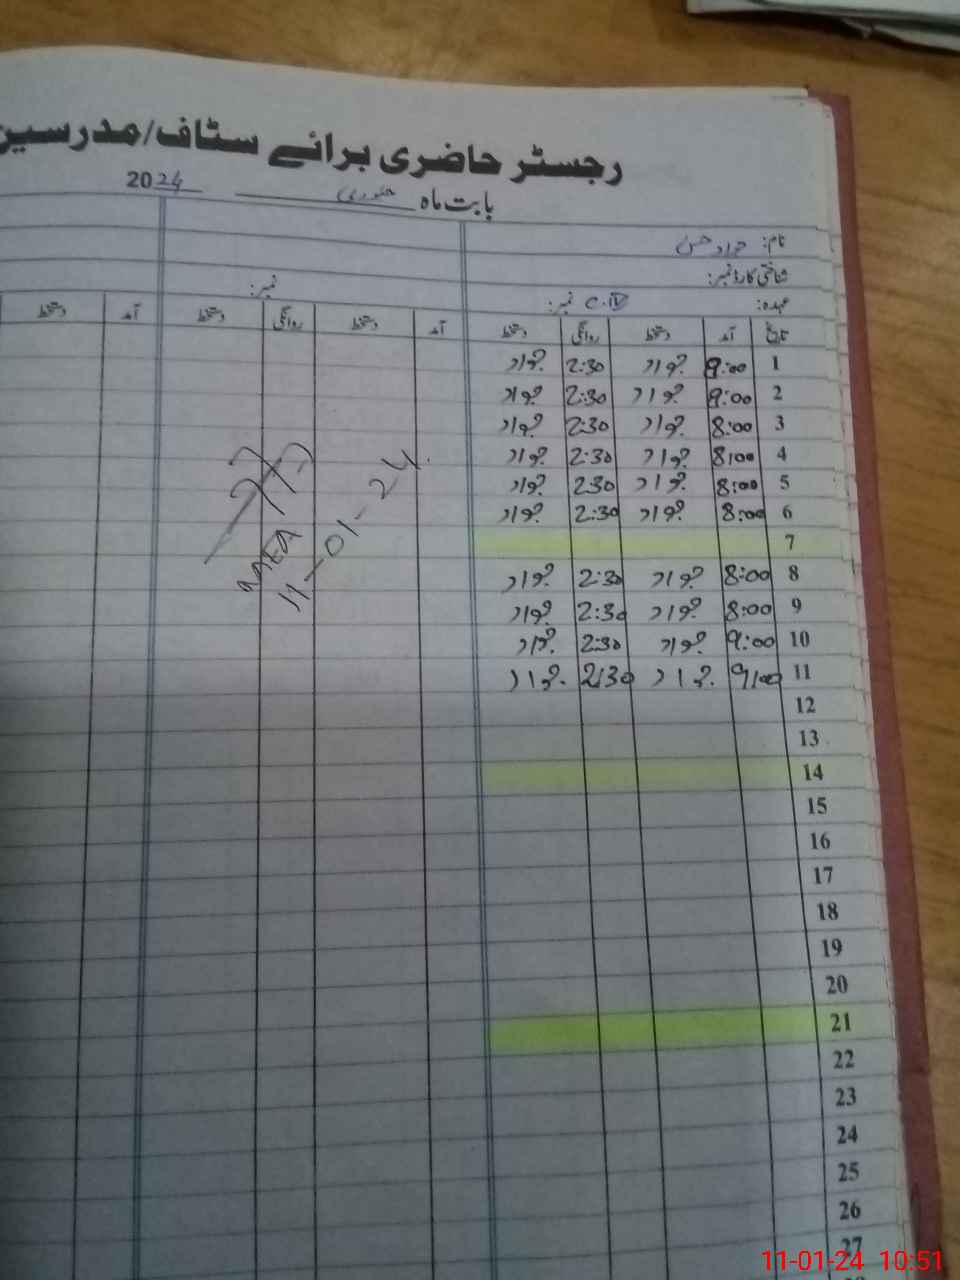 رجسٹر حاضری برائے سٹاف/مدرسین
بابت ماہ جنوری 2024
نام: جواد حسن
شناختی کارڈ نمبر:
عہدہ: C.IV نمبر: نمبر:
تاریخ آمد دستخط روانگی دستخط آمد دستخط روانگی دستخط آمد دستخط
1 9:00 جواد 2:30 جواد
2 9:00 جواد 2:30 جواد
3 8:00 جواد 2:30 جواد
4 8:00 جواد 2:30 جواد
5 8:00 جواد 2:30 جواد
6 8:00 جواد 2:30 جواد
7
8 8:00 جواد 2:30 جواد
9 8:00 جواد 2:30 جواد
10 9:00 جواد 2:30 جواد
11 9:00 جواد 2:30 جواد
12
13
14
15
16
17
18
19
20
21
22
23
24
25
26
27
11-01-24
11-01-24 10:51